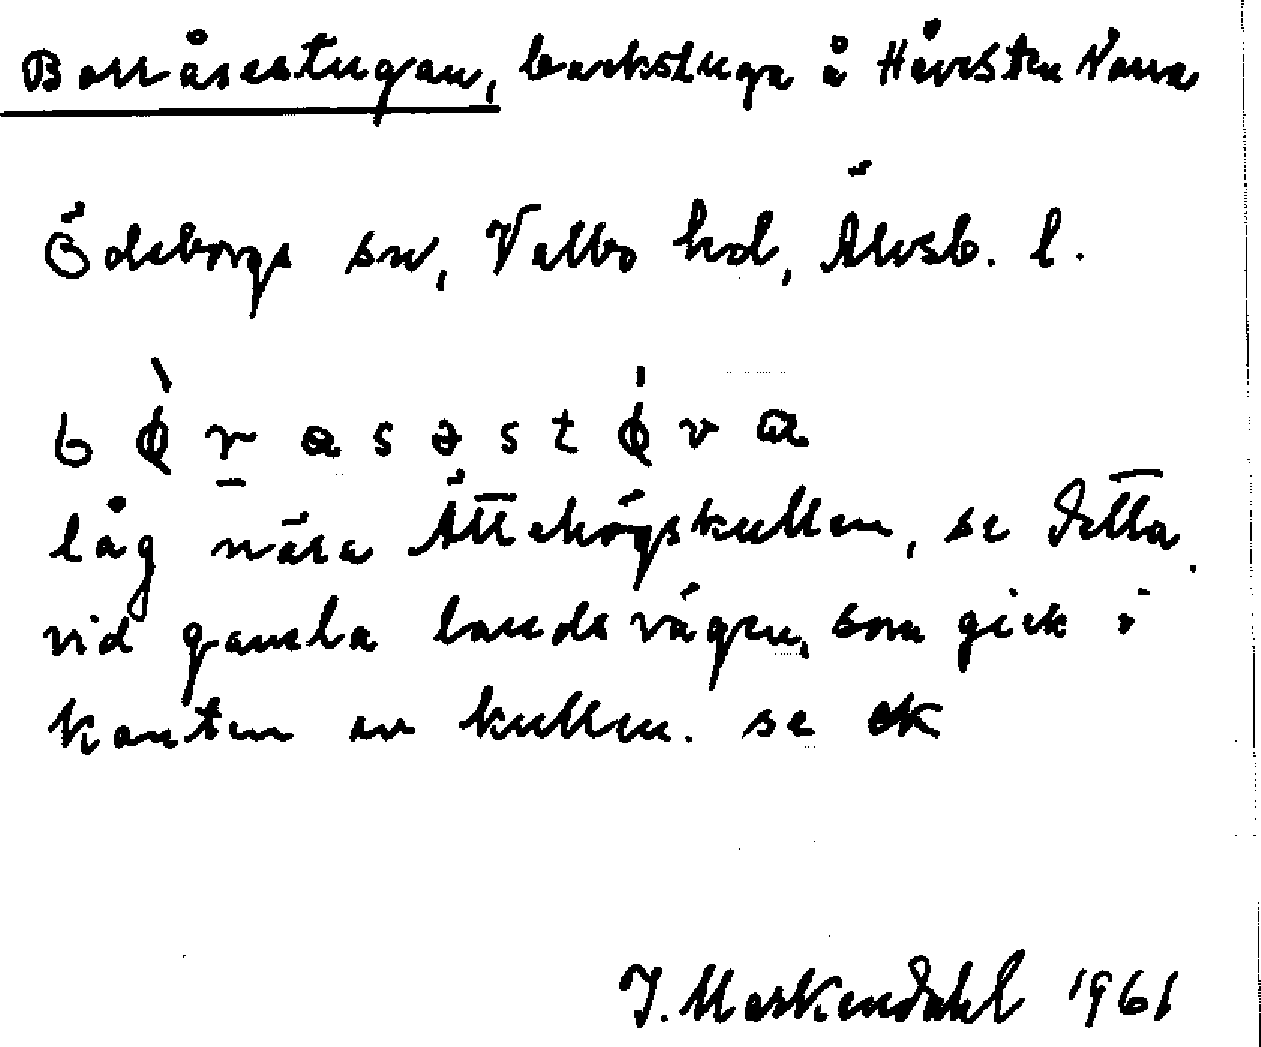 Borråsestugan, backstuga å Håvesten Norra
Ödeborgs sn, Valbo hd, Älvsb. l.
bø̀rasəstǿva
låg nära Ättehögskullen, se detta.
vid gamla landsvägen, som gick i
kanten av kullen. se ek
J. Markendahl 1961